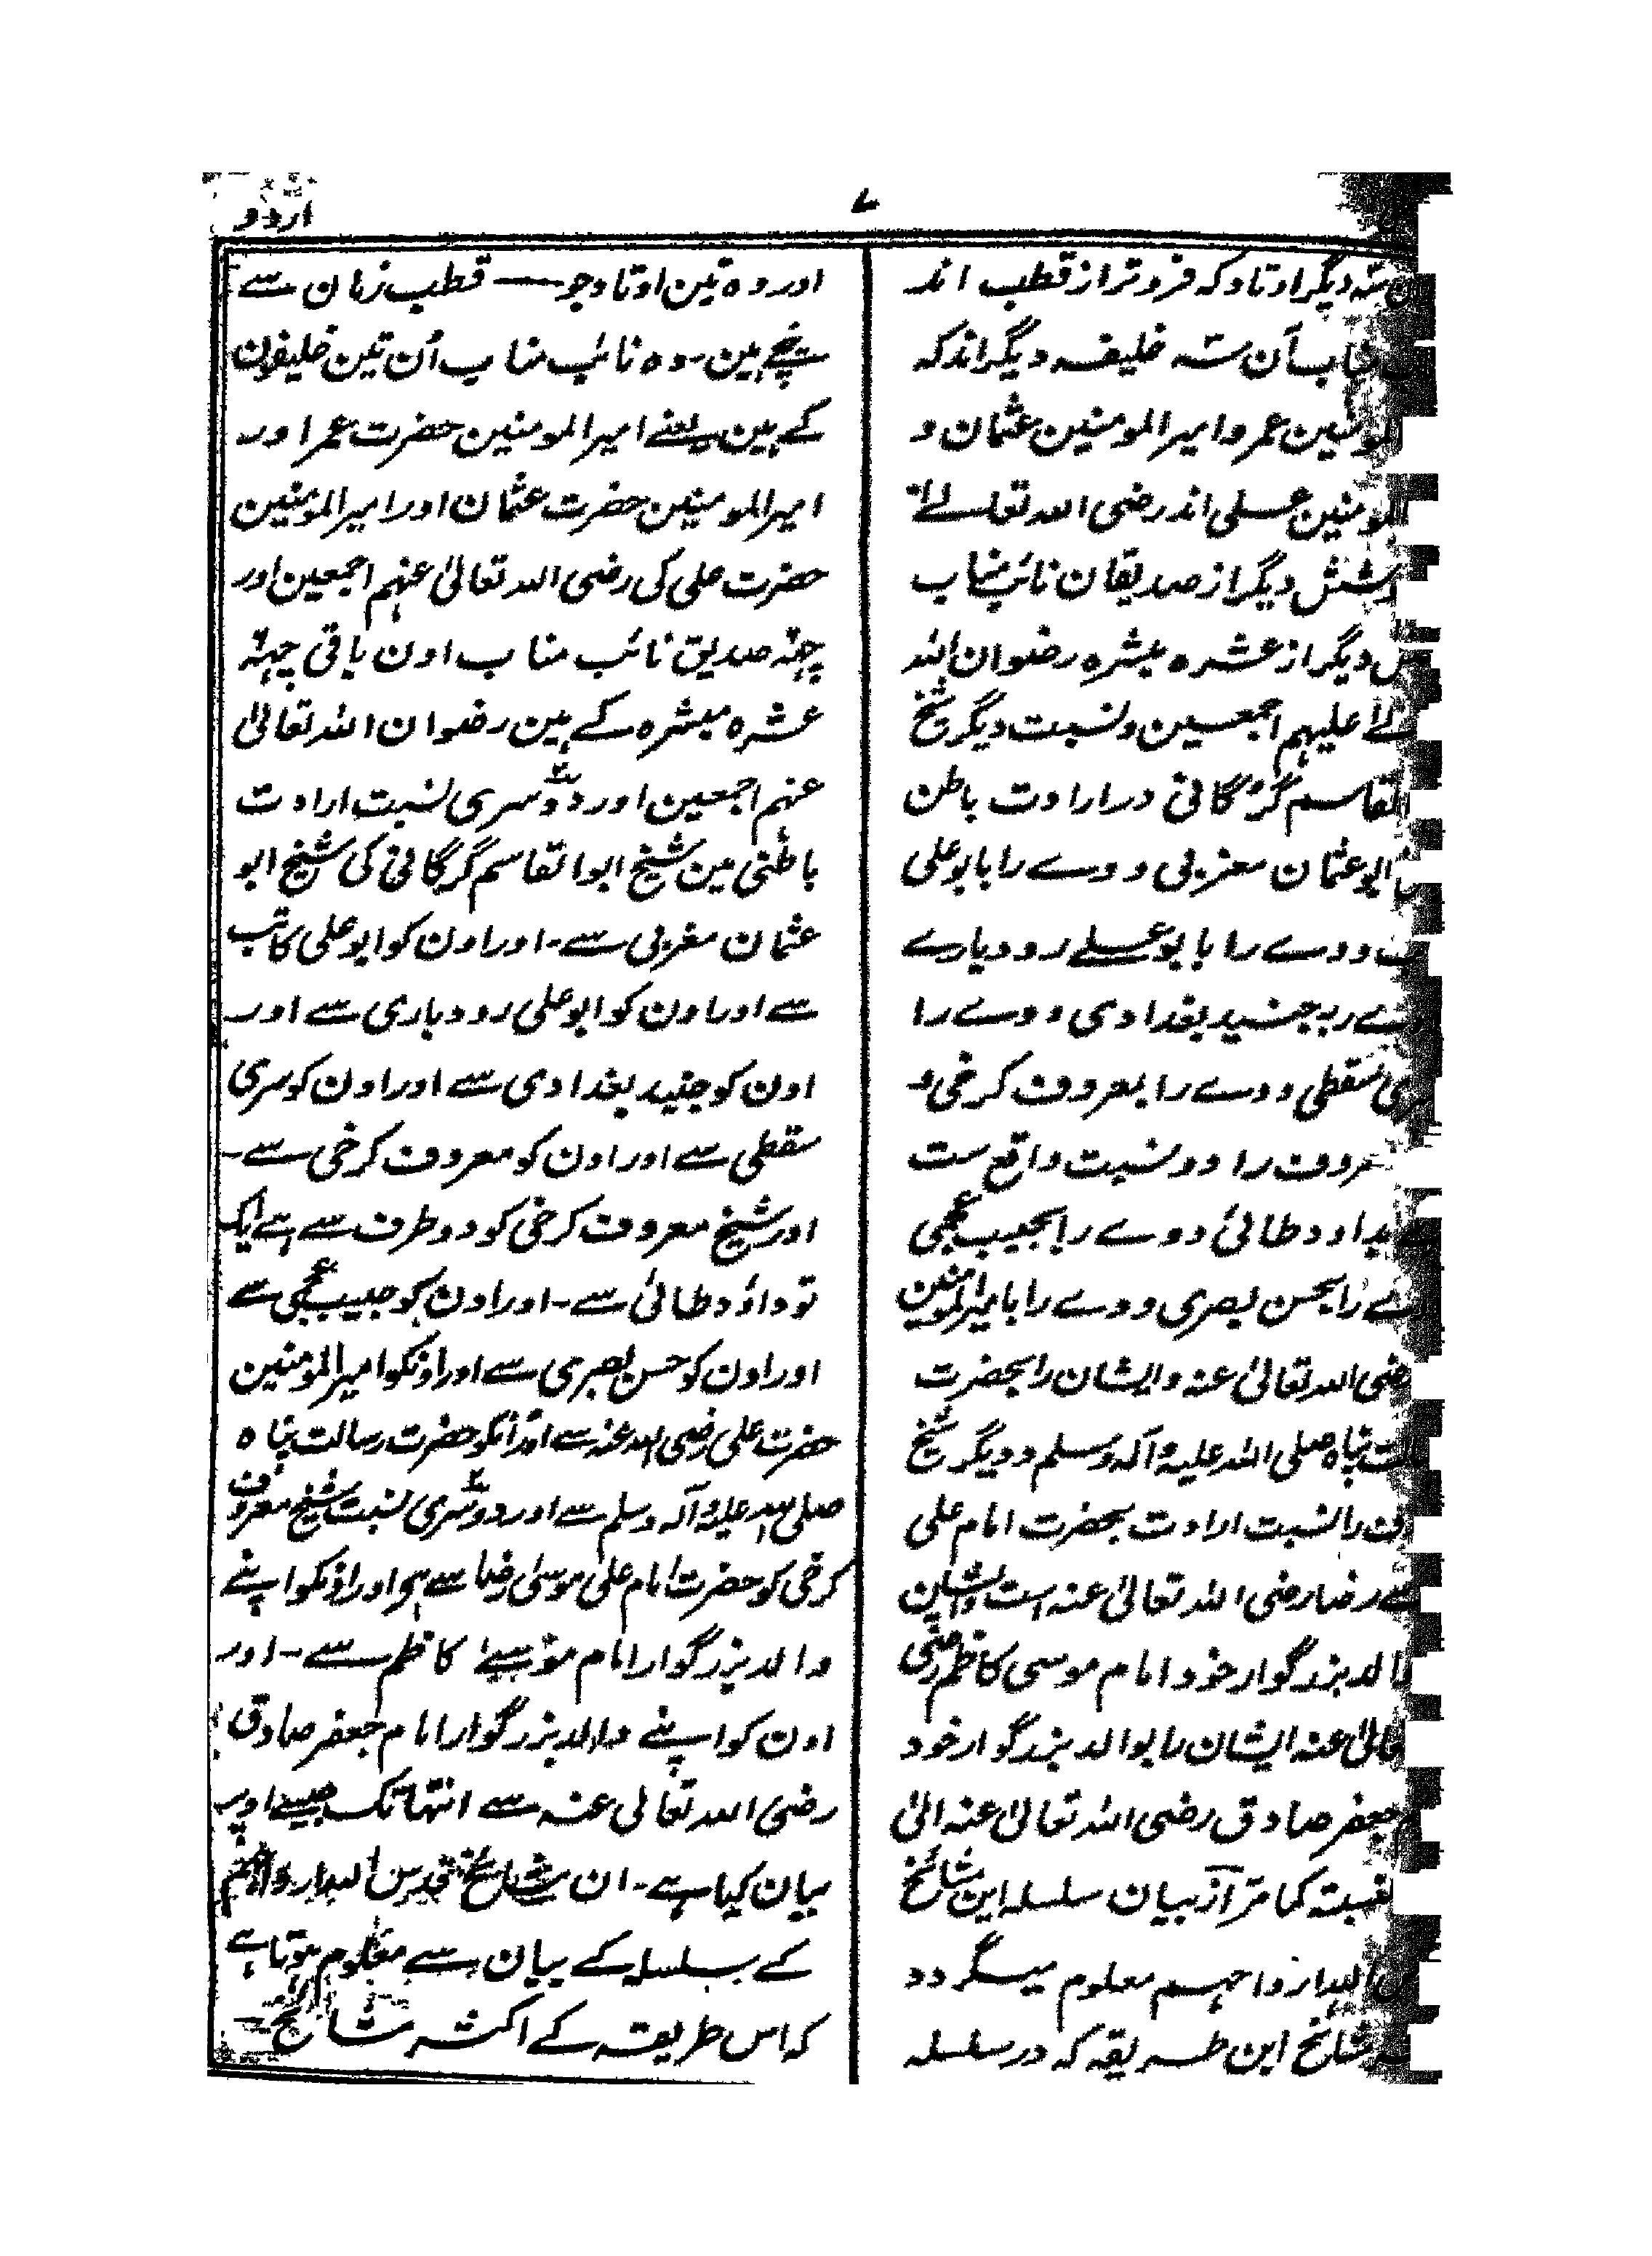 ۷
اردو
سہ دیگر اوتاد کہ فروتر از قطب اند
مناب آن سہ خلیفہ دیگر اند کہ
المومنین عمر و امیر المومنین عثمان و
المومنین علی اند رضی اللہ تعالےٰ
شش دیگر از صدیقان نائب مناب
دیگر از عشرہ مبشرہ رضوان اللہ
علیہم اجمعین و نسبت دیگر شیخ
القاسم گرگانی در ارادت باطن
ابو عثمان مغربی و وے را بابو علی
و وے را بابو علے رودبارے
بہ جنید بغدادی و وے را
سقطی و وے را بمعروف کرخی و
معروف را دو نسبت واقع ست
بداود طائی و وے را بحبیب عجمی
را بحسن بصری و وے را بامیر المومنین
رضی اللہ تعالیٰ عنہ و ایشان را بحضرت
پناہ صلی اللہ علیہ وآلہ وسلم و دیگر شیخ
را نسبت ارادت بحضرت امام علی
رضا رضی اللہ تعالیٰ عنہ است و ایشان
والد بزرگوار خود امام موسی کاظم رضی
تعالیٰ عنہ ایشان را بوالد بزرگوار خود
جعفر صادق رضی اللہ تعالیٰ عنہ الیٰ
کما مرّ از بیان سلسلہ این مشائخ
اللہ ارواحہم معلوم میگردد
مشائخ این طریقہ کہ در سلسلہ
اور وہ تین اوتاد جو — قطب زمان سے
نیچے ہین۔ وہ نائب مناب اُن تین خلیفون
کے ہین یعنے امیر المومنین حضرت عمر اور
امیر المومنین حضرت عثمان اور امیر المومنین
حضرت علی کی رضی اللہ تعالیٰ عنہم اجمعین اور
چھہ صدیق نائب مناب اون باقی چھہ
عشرہ مبشرہ کے ہین رضوان اللہ تعالیٰ
عنہم اجمعین اور دوسری نسبت ارادت
باطنی مین شیخ ابو القاسم گرگانی کی شیخ ابو
عثمان مغربی سے۔ اور اون کو ابو علی کاتب
سے اور اون کو ابو علی رودباری سے اور
اون کو جنید بغدادی سے اور اون کو سری
سقطی سے اور اون کو معروف کرخی سے۔
اور شیخ معروف کرخی کو دو طرف سے ہے ایک
تو داؤد طائی سے۔ اور اون کو حبیب عجمی سے
اور اون کو حسن بصری سے اور اونکو امیر المومنین
حضرت علی رضی اللہ عنہ سے اور اُنکو حضرت رسالت پناہ
صلی اللہ علیہ وآلہ وسلم سے اور دوسری نسبت شیخ معروف
کرخی کو حضرت امام علی موسیٰ رضا سے ہے اور اونکو اپنے
والد بزرگوار امام موسےٰ کاظم سے۔ اور
اون کو اپنے والد بزرگوار امام جعفر صادق
رضی اللہ تعالی عنہ سے انتہا تک جیسے اوپر
بیان کیا ہے۔ ان مشائخ قدس اللہ ارواحہم
کے سلسلہ کے بیان سے معلوم ہوتا ہے
کہ اس طریقہ کے اکثر مشائخ